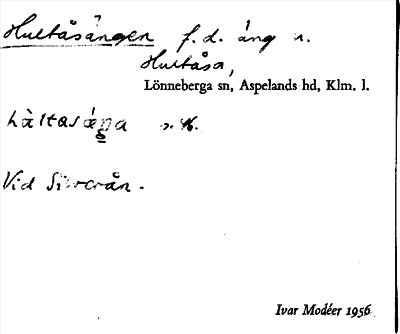 Hultåsängen f.d. äng u.
Hultåsa,
Lönneberga sn, Aspelands hd, Klm. l.
Vid Silverån.
Ivar Modéer 1956